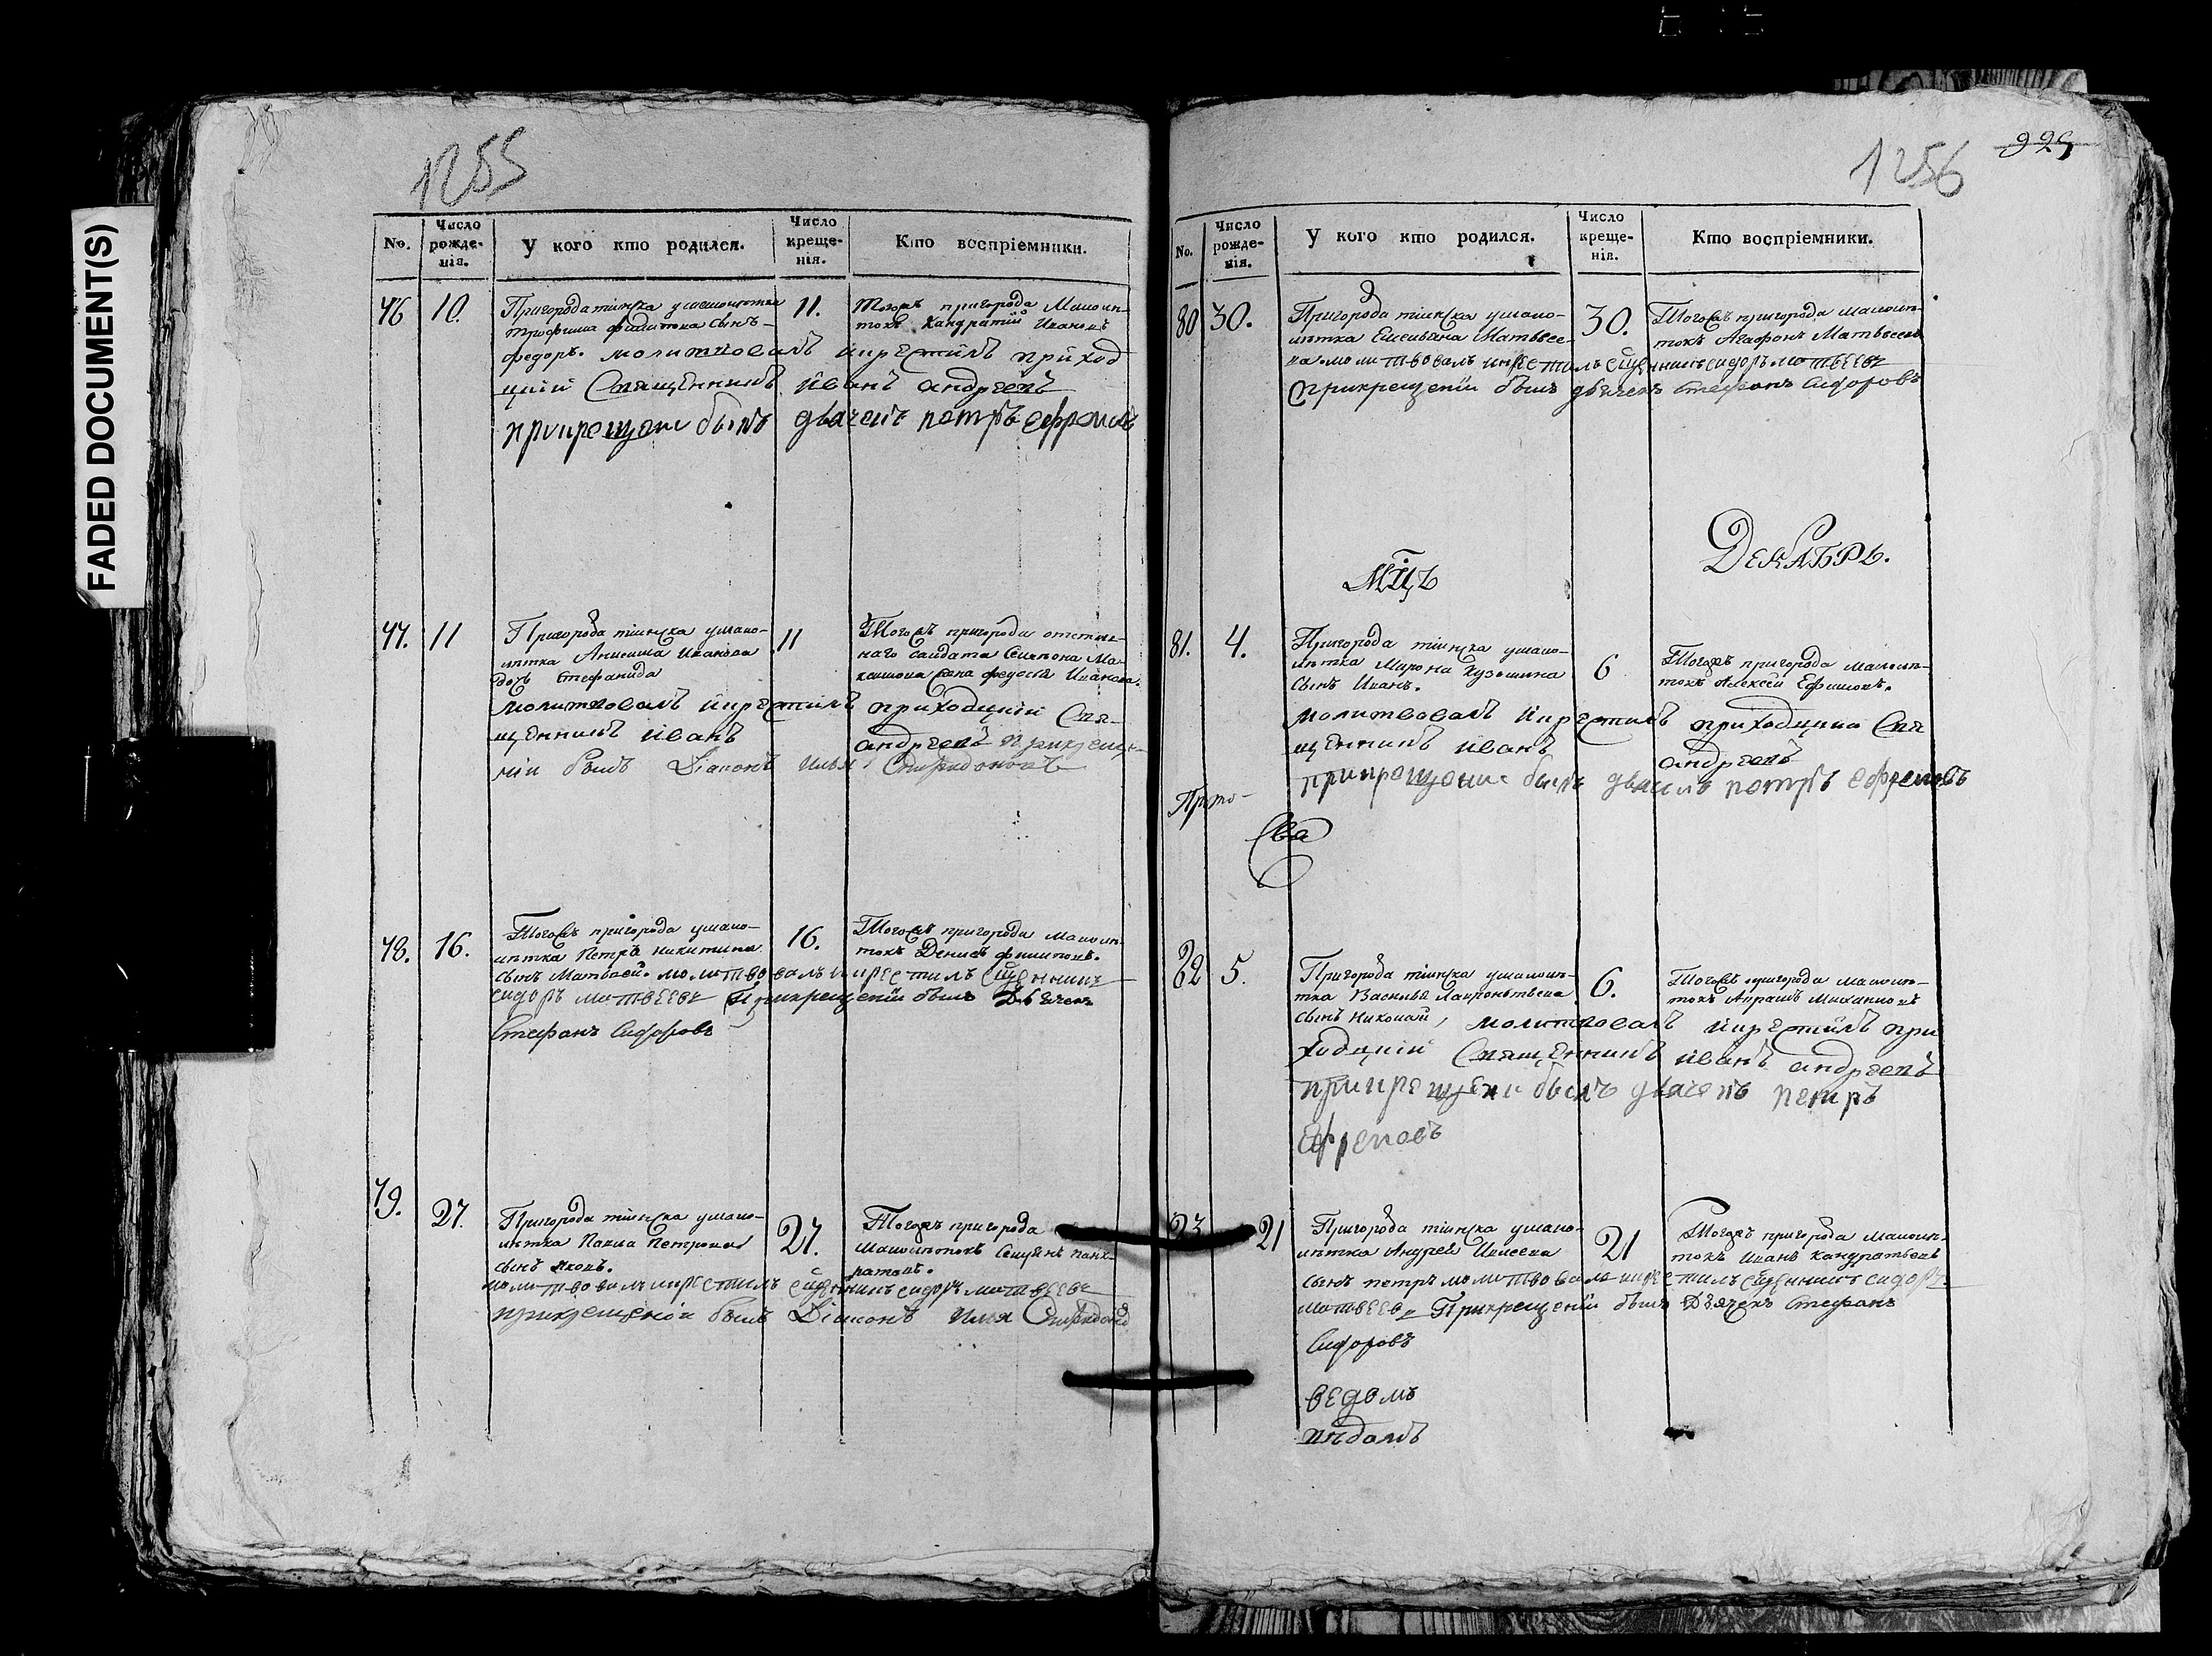 FADED DOCUMENT(S)
1255
No.
Число рожде-нія.
У кого кто родился.
Число креще-нія.
Кто воспріемники.
76
10.
Пригорода тіинска умало-
Трофима сынъ
федоръ. молитвовалъ икрестилъ приход
цкій Священникъ иванъ андреевъ
прикрещени былъ дьячекъ петръ ефремовъ
11.
Тогожъ пригорода Малолѣ-
токъ Кандратій Ивановъ
77.
11
Пригорода тіинска умало-
лѣтка Анисима Иванова
дочь Стефанида
молитвовалъ икрестилъ приходцкій Свя-
щенникъ иванъ андреевъ прикреще-
ніи былъ Діаконъ илья Спиридоновъ
11
Тогожъ пригорода отстав-
наго салдата Семиона Ма-
ксимова жена федосья Иванова.
78.
16.
Тогожъ пригорода умало-
лѣтка Петра никитина
сынъ Матвей. молитвовалъ икрестилъ сщенникъ
сидоръ мотвеевъ Прикрещеніи былъ Дьячекъ
Стефанъ Сидоровъ
16.
Тогожъ пригорода малолѣ-
токъ Денисъ филиповъ.
79.
27.
Пригорода тіинска умало-
лѣтка Павла Петрова
сынъ яковъ.
молитвовалъ икрестилъ сщенникъ сидоръ мотвеевъ
прикрещеніи былъ Діаконъ илья Спиридоновъ
27.
Тогожъ пригорода
малолѣтокъ Семенъ панк-
ратовъ.
1256
925
No.
Число рожде-нія.
У кого кто родился.
Число креще-нія.
Кто воспріемники.
80
30.
Пригорода тіинска умало-
лѣтка Емельяна Матвѣе-
ва. молитвовалъ икрестилъ сщенникъ сидоръ мотвеевъ
прикрещеніи былъ дьячекъ Стефанъ Сидоровъ
30.
Тогожъ пригорода малолѣ-
токъ Агафонъ Матвѣевъ
Мцъ
Декабрь.
81.
4.
Пригорода тіинска умало-
лѣтка Мирона Кузмина
сынъ Иванъ.
молитвовалъ икрестилъ приходцкій Свя
щенникъ иванъ андреевъ
прикрещение былъ дьячекъ петръ ефремовъ
6
Тогожъ пригорода малолѣ-
токъ Алексей Ефимовъ.
Прото-
Сва
82
5.
Пригорода тіинска умалолѣ-
тка Василья Лаврентьева
сынъ Николай, молитвовалъ икрестилъ при
ходцкій Священникъ иванъ андреевъ
прикрещени былъ дьячекъ петръ
ефремовъ
6.
Тогожъ пригорода малолѣ-
токъ Михаиловъ
83
21
Пригорода тіинска умало-
лѣтка Андрея
сынъ петръ молитвовалъ икрестилъ сщенникъ сидоръ
мотвеевъ Прикрещеніи былъ Дьячекъ Стефанъ
Сидоровъ
21
Тогожъ пригорода малолѣ-
токъ Иванъ Кандратьевъ
ведомъ